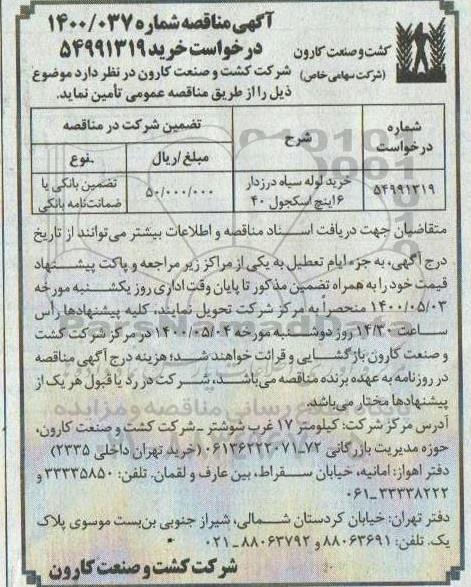 آگهی مناقصه شماره ۱۴۰۰/۰۳۷
درخواست خرید ۵۴۹۹۱۳۱۹
کشت و صنعت کارون
(شرکت سهامی خاص)
شرکت کشت و صنعت کارون در نظر دارد موضوع
ذیل را از طریق مناقصه عمومی تأمین نماید.
شماره درخواست
شرح
تضمین شرکت در مناقصه
مبلغ/ریال
نوع
۵۴۹۹۱۳۱۹
خرید لوله سیاه درزدار
۶ اینچ اسکجول ۴۰
۵۰/۰۰۰/۰۰۰
تضمین بانکی یا
ضمانت‌نامه بانکی
متقاضیان جهت دریافت اسناد مناقصه و اطلاعات بیشتر می‌توانند از تاریخ
درج آگهی، به جزء ایام تعطیل به یکی از مراکز زیر مراجعه و پاکت پیشنهاد
قیمت خود را به همراه تضمین مذکور تا پایان وقت اداری روز یکشنبه مورخه
۱۴۰۰/۰۵/۰۳ منحصراً به مرکز شرکت تحویل نمایند، کلیه پیشنهادها رأس
ساعت ۱۴/۳۰ روز دوشنبه مورخه ۱۴۰۰/۰۵/۰۴ در مرکز شرکت کشت
و صنعت کارون بازگشایی و قرائت خواهند شد؛ هزینه درج آگهی مناقصه
در روزنامه به عهده برنده مناقصه می‌باشد، شرکت در رد یا قبول هر یک از
پیشنهادها مختار می‌باشد.
آدرس مرکز شرکت: کیلومتر ۱۷ غرب شوشتر ـ شرکت کشت و صنعت کارون،
حوزه مدیریت بازرگانی ۷۲ـ۰۶۱۳۶۲۲۲۰۷۱ (خرید تهران داخلی ۲۳۳۵)
دفتر اهواز: امانیه، خیابان سقراط، بین عارف و لقمان. تلفن: ۳۳۳۳۵۸۵۰ و
۳۳۳۳۸۲۲۲ـ۰۶۱
دفتر تهران: خیابان کردستان شمالی، شیراز جنوبی بن‌بست موسوی پلاک
یک. تلفن: ۸۸۰۶۳۶۹۱ و ۸۸۰۶۳۷۹۲ـ۰۲۱
شرکت کشت و صنعت کارون